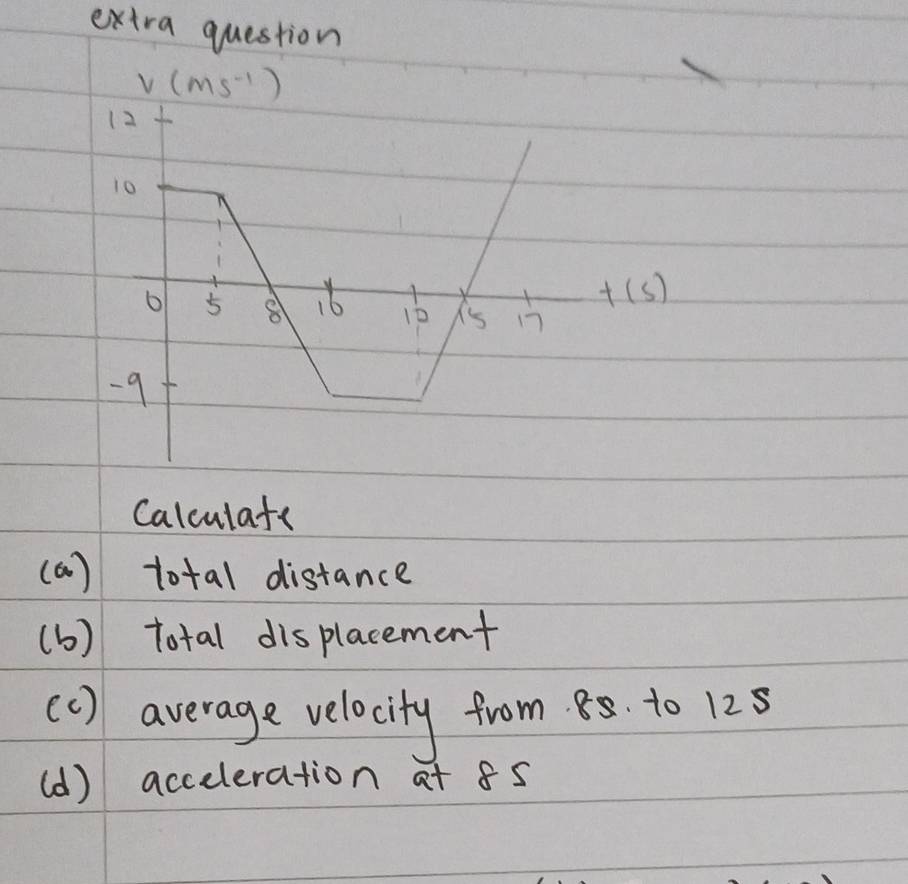 extra question
v (ms⁻¹)
12
10
0 5 8 10 12 15 17 t(s)
-9
Calculate
(a) total distance
(b) Total displacement
(c) average velocity from 8s. to 12s
(d) acceleration at 8s